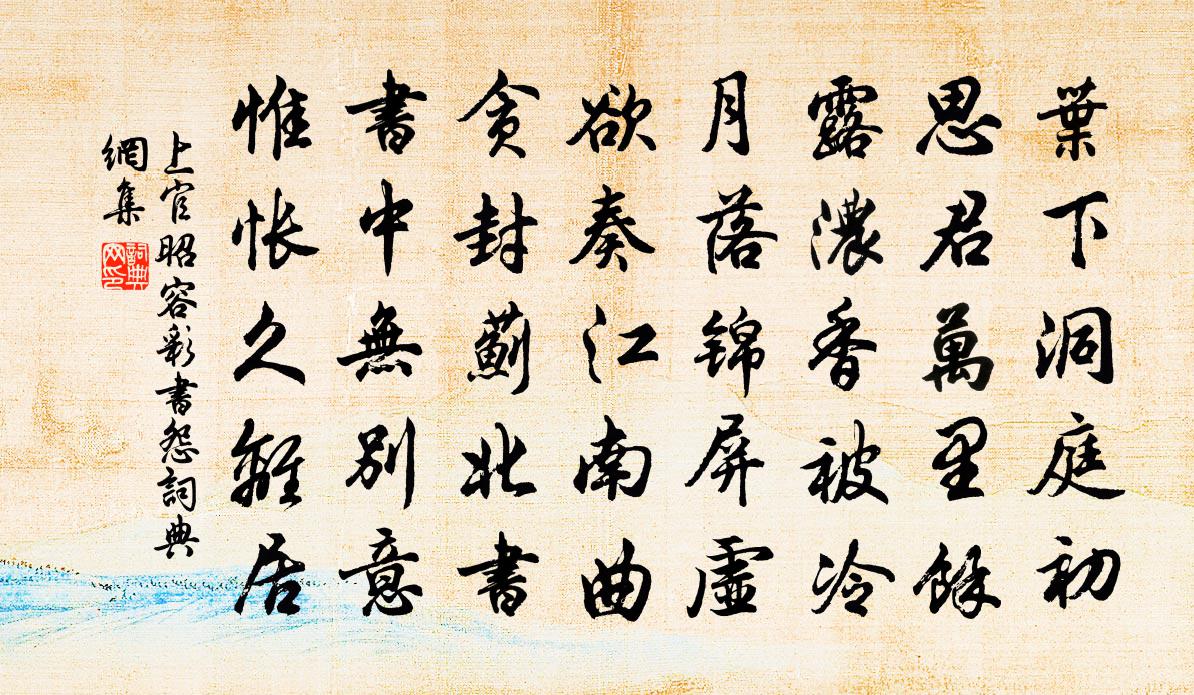 葉下洞庭初
思君萬里餘
露濃香被冷
月落錦屏虛
欲奏江南曲
貪封薊北書
書中無別意
惟悵久離居
上官昭容彩書怨詞典
網集
詞典
网印